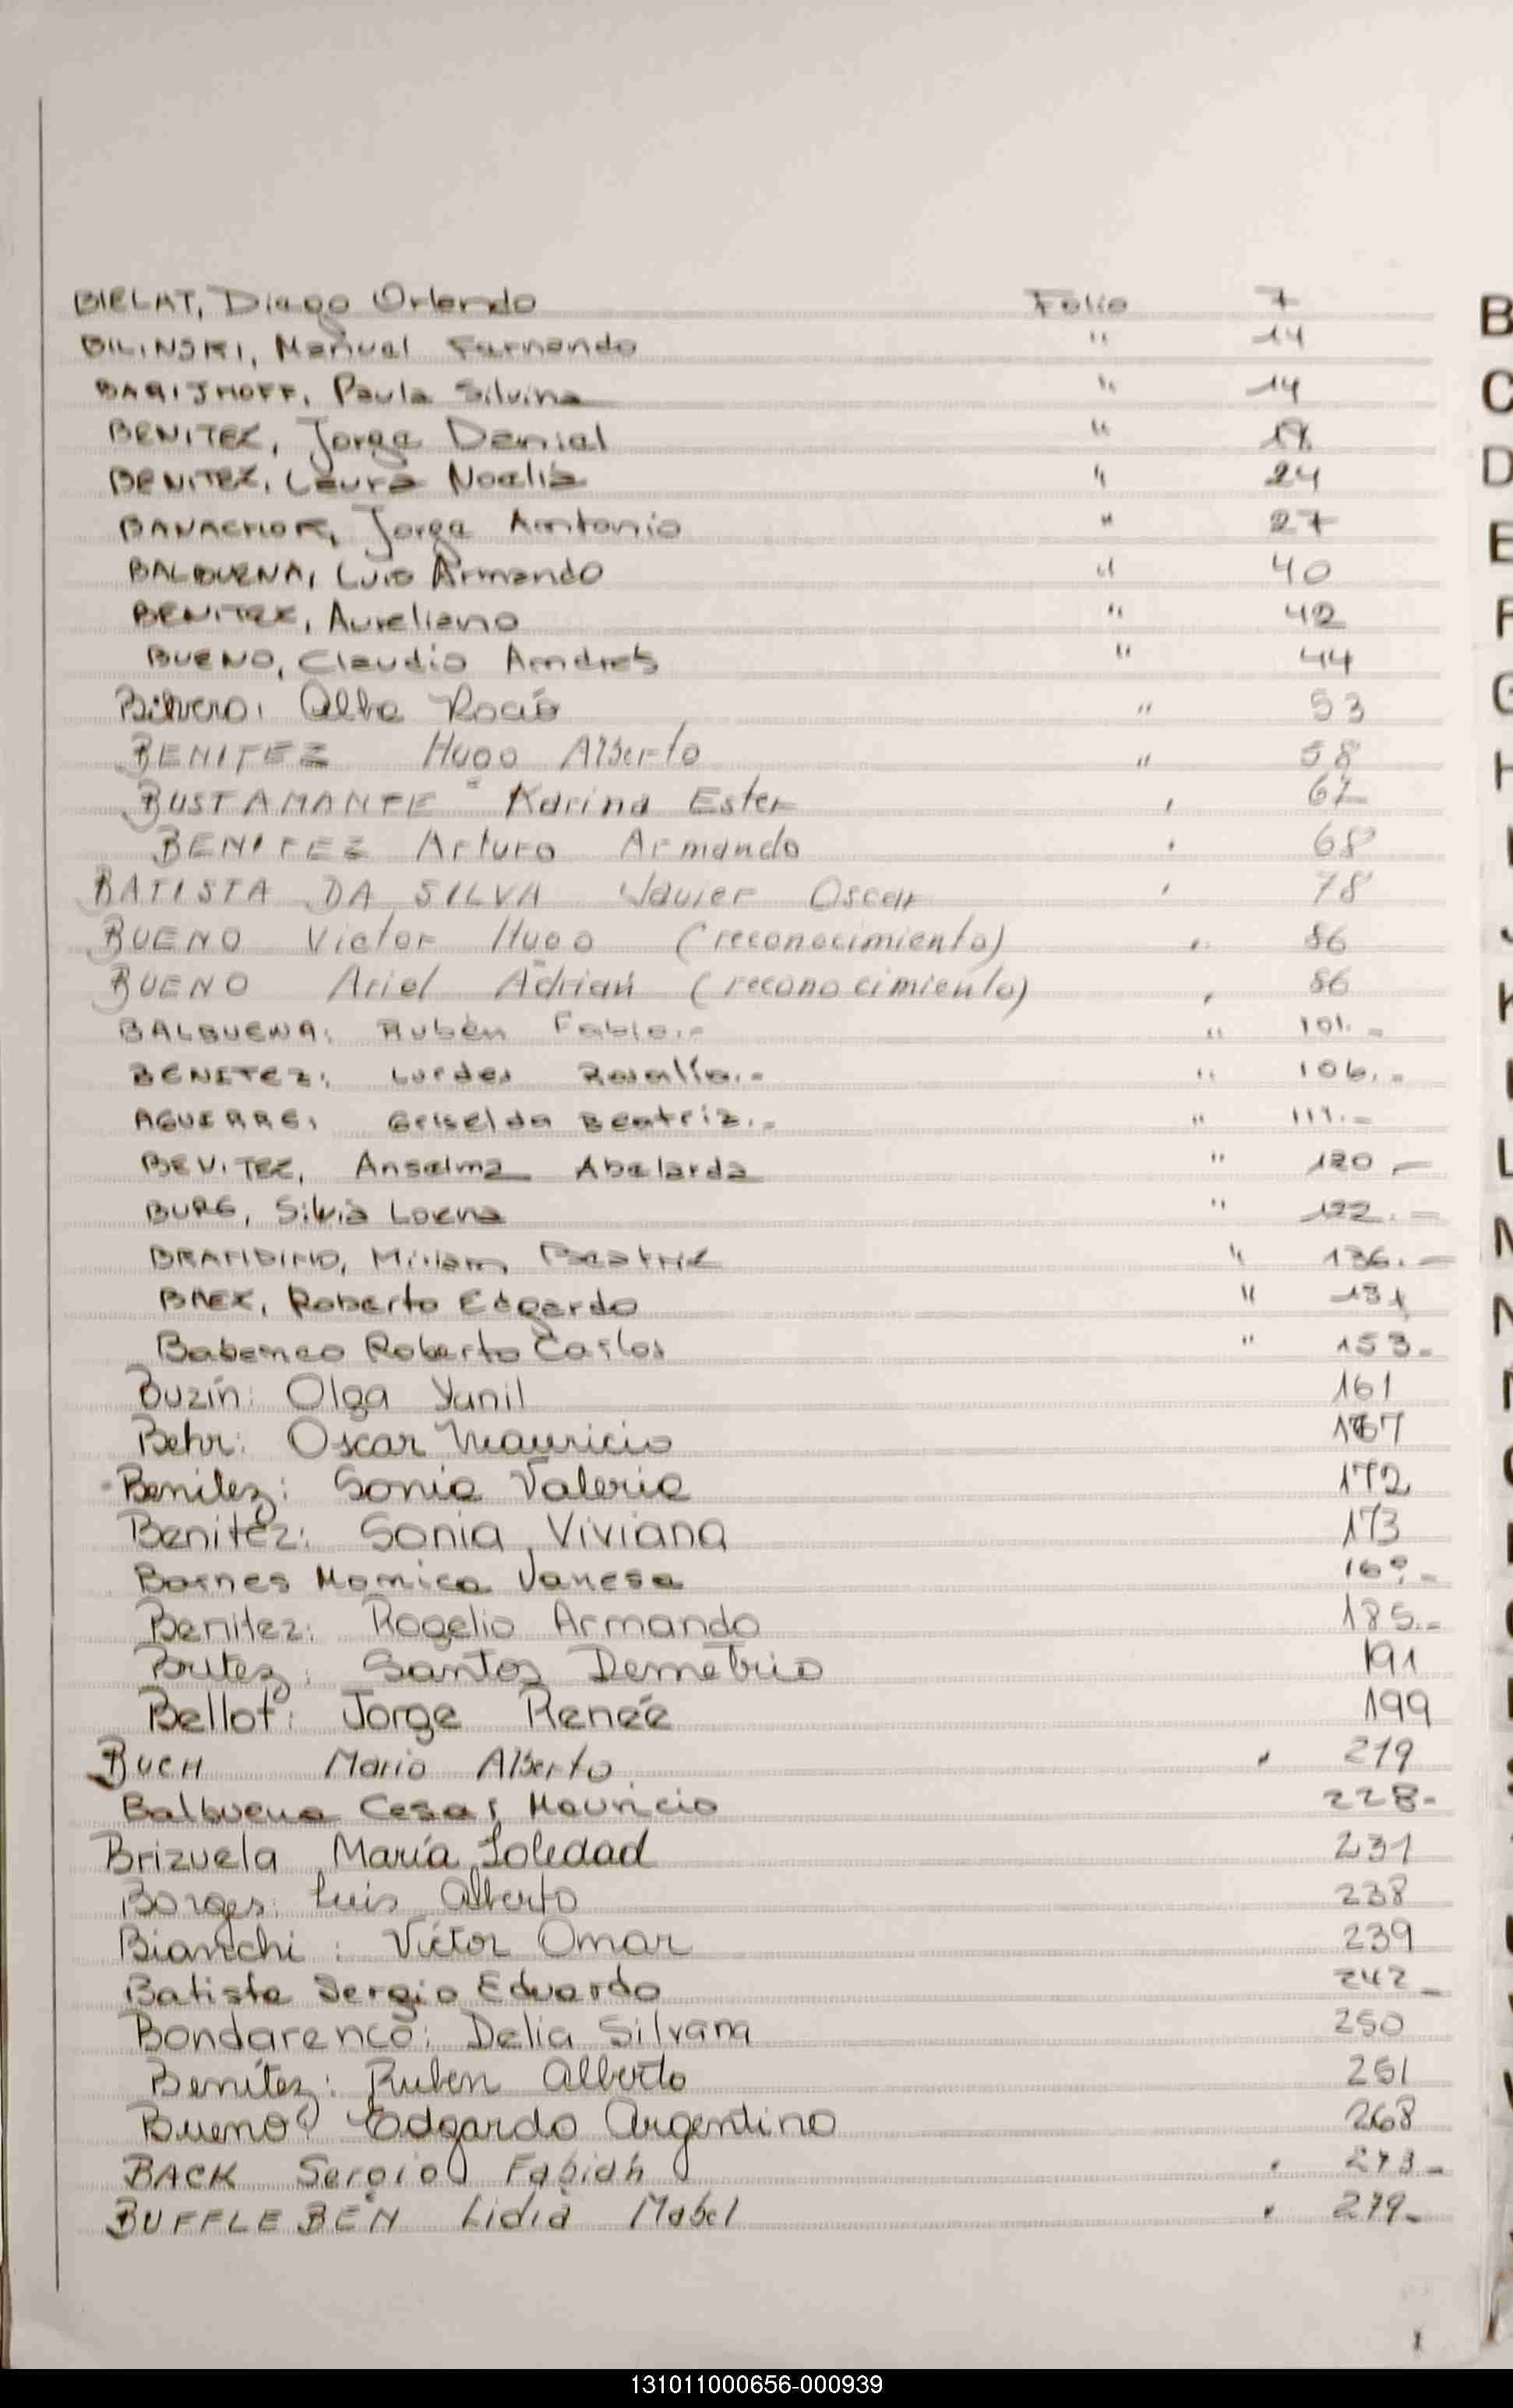 BIELAT, Diego Orlando Folio 7
BILINSKI, Manuel Fernando " 14
BARIJHOFF, Paula Silvina " 14
BENITEZ, Jorge Daniel "
BENITEZ, Laura Noelia " 24
Jorge Antonio " 27
BALBUENA, Luis Armando " 40
BENITEZ, Aureliano " 42
BUENO, Claudio Andrés " 44
Alba Rocío " 53
BENITEZ Hugo Alberto " 58
BUSTAMANTE Karina Ester 67
BENITEZ Arturo Armando 68
BATISTA DA SILVA Javier Oscar 78
BUENO Victor Hugo (reconocimiento) " 86
BUENO Ariel Adrian (reconocimiento) 86
BALBUENA: Rubén Fabio.- " 101.-
BENITEZ: Lurdes Rosalía.- " 106.-
AGUERRE: Griselda Beatriz.- " 111.-
BENITEZ, Anselma Abelarda " 120 -
BURG, Silvia Lorena " 122.-
Miriam Beatriz " 136.-
BAEZ, Roberto Edgardo "
Babenco Roberto Carlos " 153-
Buzín: Olga Yanil 161
Behr: Oscar Mauricio 167
Benitez: Sonia Valeria 172
Benitez: Sonia Viviana 173
Barnes Monica Vanesa
Benitez: Rogelio Armando 185.-
Britez: Santos Demetrio 191
Bellot: Jorge Renée 199
BUCH Mario Alberto 219
Balbuena Cesar Mauricio 228-
Brizuela María Soledad 231
Borges: Luis Alberto 238
Bianchi: Victor Omar 239
Batista Sergio Eduardo 242-
Bondarenco: Delia Silvana 250
Benítez: Ruben Alberto 251
Bueno: Edgardo Argentino 268
BACK Sergio Fabián 273-
BUFFLEBEN Lidia Mabel 279-
B
C
D
E
F
G
H
I
J
K
L
M
N
131011000656-000939